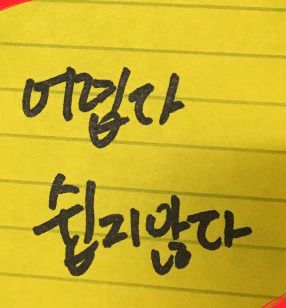 어렵다
쉽지않다